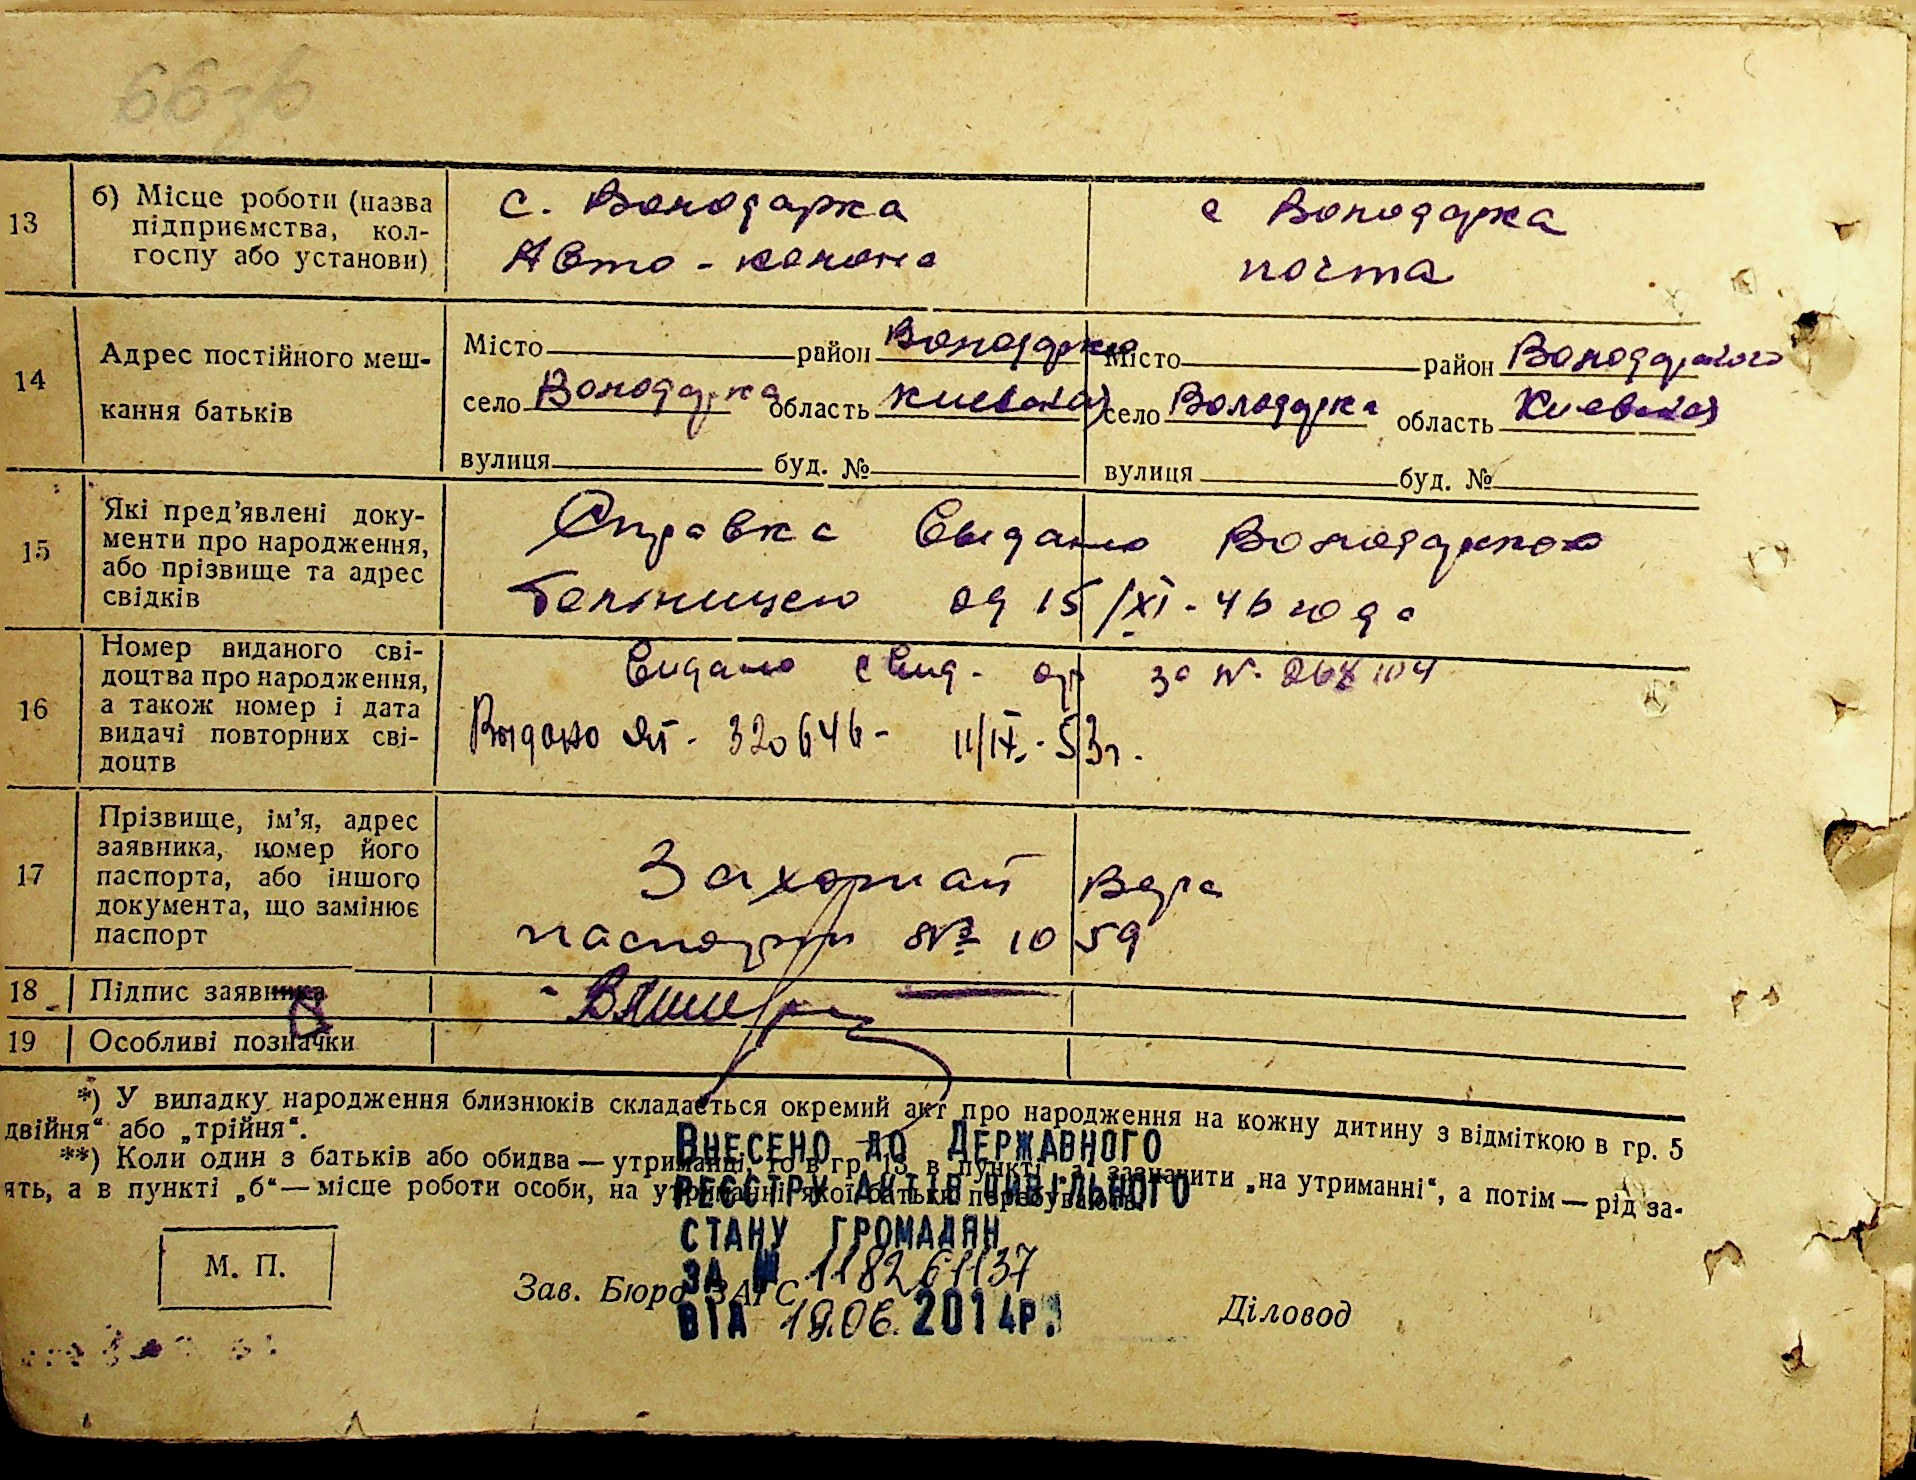 66зв
13
б) Місце роботи (назва
підприємства, кол-
госпу або установи)
с. Володарка
Авто-колона
с Володарка
почта
14
Адрес постійного меш-
кання батьків
Місто район
село Володарка область Киевская
вулиця буд. №
Місто район Володарского
село Володарка область Киевская
вулиця буд. №
15
Які пред'явлені доку-
менти про народження,
або прізвище та адрес
свідків
Справка Выдано
од 15/XI-46 года
16
Номер виданого сві-
доцтва про народження,
а також номер і дата
видачі повторних сві-
доцтв
за №
Выдано ЯТ- 320646- 11/IX.-53г.
17
Прізвище, ім'я, адрес
заявника, номер його
паспорта, або іншого
документа, що замінює
паспорт
Вера
№ 1059
18
Підпис заявника
19
Особливі позначки
*) У випадку народження близнюків складається окремий акт про народження на кожну дитину з відміткою в гр. 5
двійня“ або „трійня“.
**) Коли один з батьків або обидва — утриманці, то в гр. 13 в пункті „а“ зазначити „на утриманні“, а потім — рід за-
ять, а в пункті „б“ — місце роботи особи, на утриманні якої батьки перебувають.
ВНЕСЕНО ДО ДЕРЖАВНОГО
РЕЄСТРУ АКТІВ ЦИВІЛЬНОГО
СТАНУ ГРОМАДЯН
ЗА № 118261137
ВІД 19.06.2014р.
М. П.
Зав. Бюро ЗАГС
Діловод